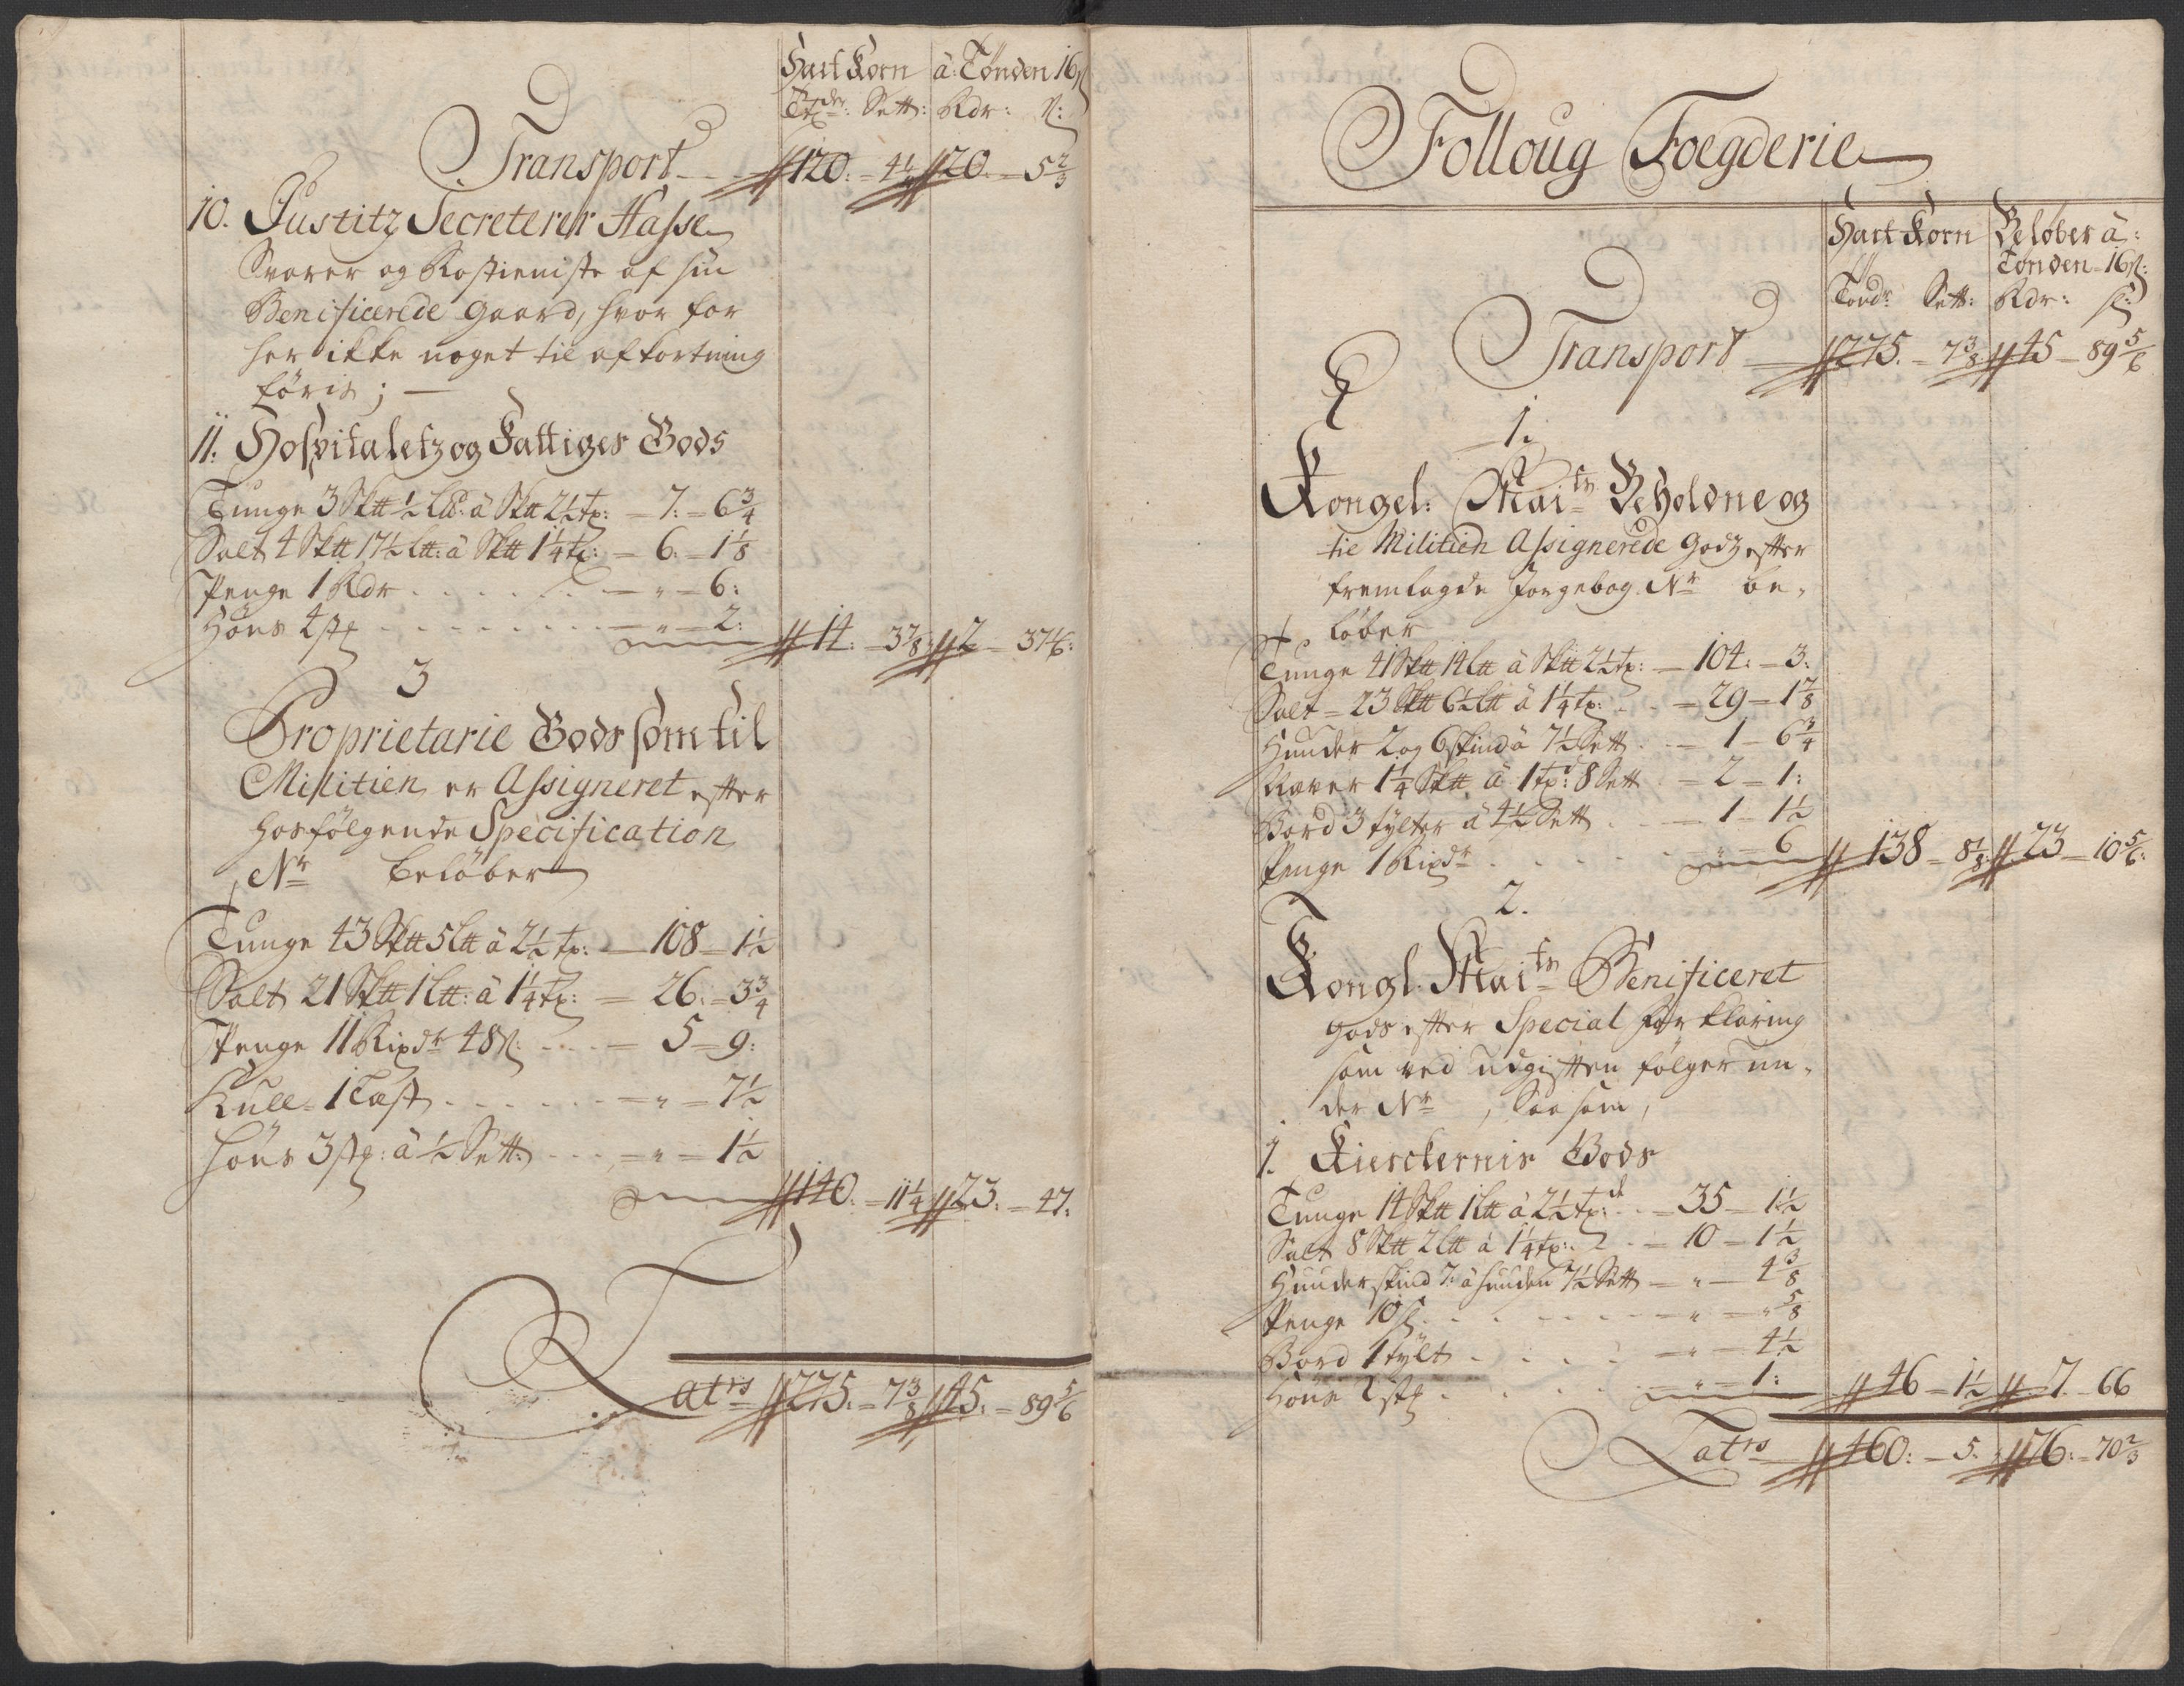 Hart Korn à: Tønden 16 ß
Tdr: Sett: Rdr: ß:
Transport - - 120: - 4 1/4 20. - 5 2/3
10. Justitz Secreterer Hasse
Svarer og Rostieniste af sin
Benificerede Gaard, hvor for
her ikke noget til afkortning
føris; —
11. Hospitaletz og Fattiges Gods
Tunge 3 Skt 1/2 Lt: à Skt 2 1/2 tr: - 7: - 6 3/4
Salt 4 Skt 17 1/2 Lt: à Skt 1 1/4 tr: - 6. - 1 1/8
Penge 1 Rdr . . . . . . - " - 6:
Høns 4 stk . . . . . - " - 2: 14: - 3 7/8: 2 - 37 4/6:
3
Proprietarie Gods som til
Militien er Assigneret efter
hosfølgende Specification
Nr beløber
Tunge 43 Skt 5 Lt à 2 1/2 tr: - 108 - 1 1/2
Salt 21 Skt 1 Lt: à 1 1/4 tr: = 26: = 3 3/4
Penge 11 Rixdr 48 ß: . . . = 5 = 9:
Kull 1 Læst . . . . . = " = 7 1/2
Høns 3 stk: à 1/2 Sett: . . . = " = 1 1/2
140. = 11 1/4 23. = 47:
Latrs 275: = 7 3/8 45: = 89 5/6
Folloug Foegderie
Hart Korn Beløber à:
Tønden 16 ß:
Tønd: Sett: Rdr: ß:
Transport 275. - 7 3/8 45 - 89 5/6
1.
Kongel: Maits Beholdne og
til Militien Assignerede Godz efter
fremlagde Jorgebog Nr be,
løber
Tunge 41 Skt 14 Lt à Skt 2 1/2 tr: - 104: - 3:
Salt = 23 Skt 6 1/2 Lt à 1 1/4 tr: . - = 29 - 1 7/8
Huuder 2 og 6 skind à 7 1/2 Sett . - 1 - 6 3/4
Haver 1 1/4 Skt à 1 tr: 8 Sett . = 2 - 1:
Bord 3 tylter à 4 1/2 Sett . . - 1 - 1 1/2
Penge 1 Rixdr . . . . . - " - 6 138 - 8 1/8: 23 - 10 5/6:
2.
Kongl: Maits Benificeret
Gods efter Special forklaring
som ved udgiften følger un,
der Nr , Saasom,
1. Kierckernis Gods
Tunge 14 Skt 1 Lt à 2 1/2 tr: . . - 35 - 1 1/2
Salt 8 Skt 2 Lt à 1 1/4 tr: . . = 10 - 1 1/2
Huuderskind 7 à huuden 7 1/2 Sett - " - 4 3/8
Penge 10 ß . . . . . . - " = " 5/8
Bord 1 tylt . . . . . - " - 4 1/2
Høns 2 stk . . . . . . - " - 1: 46 - 1 1/2 7. - 66
Latrs 460: - 5. 76: = 70 2/3